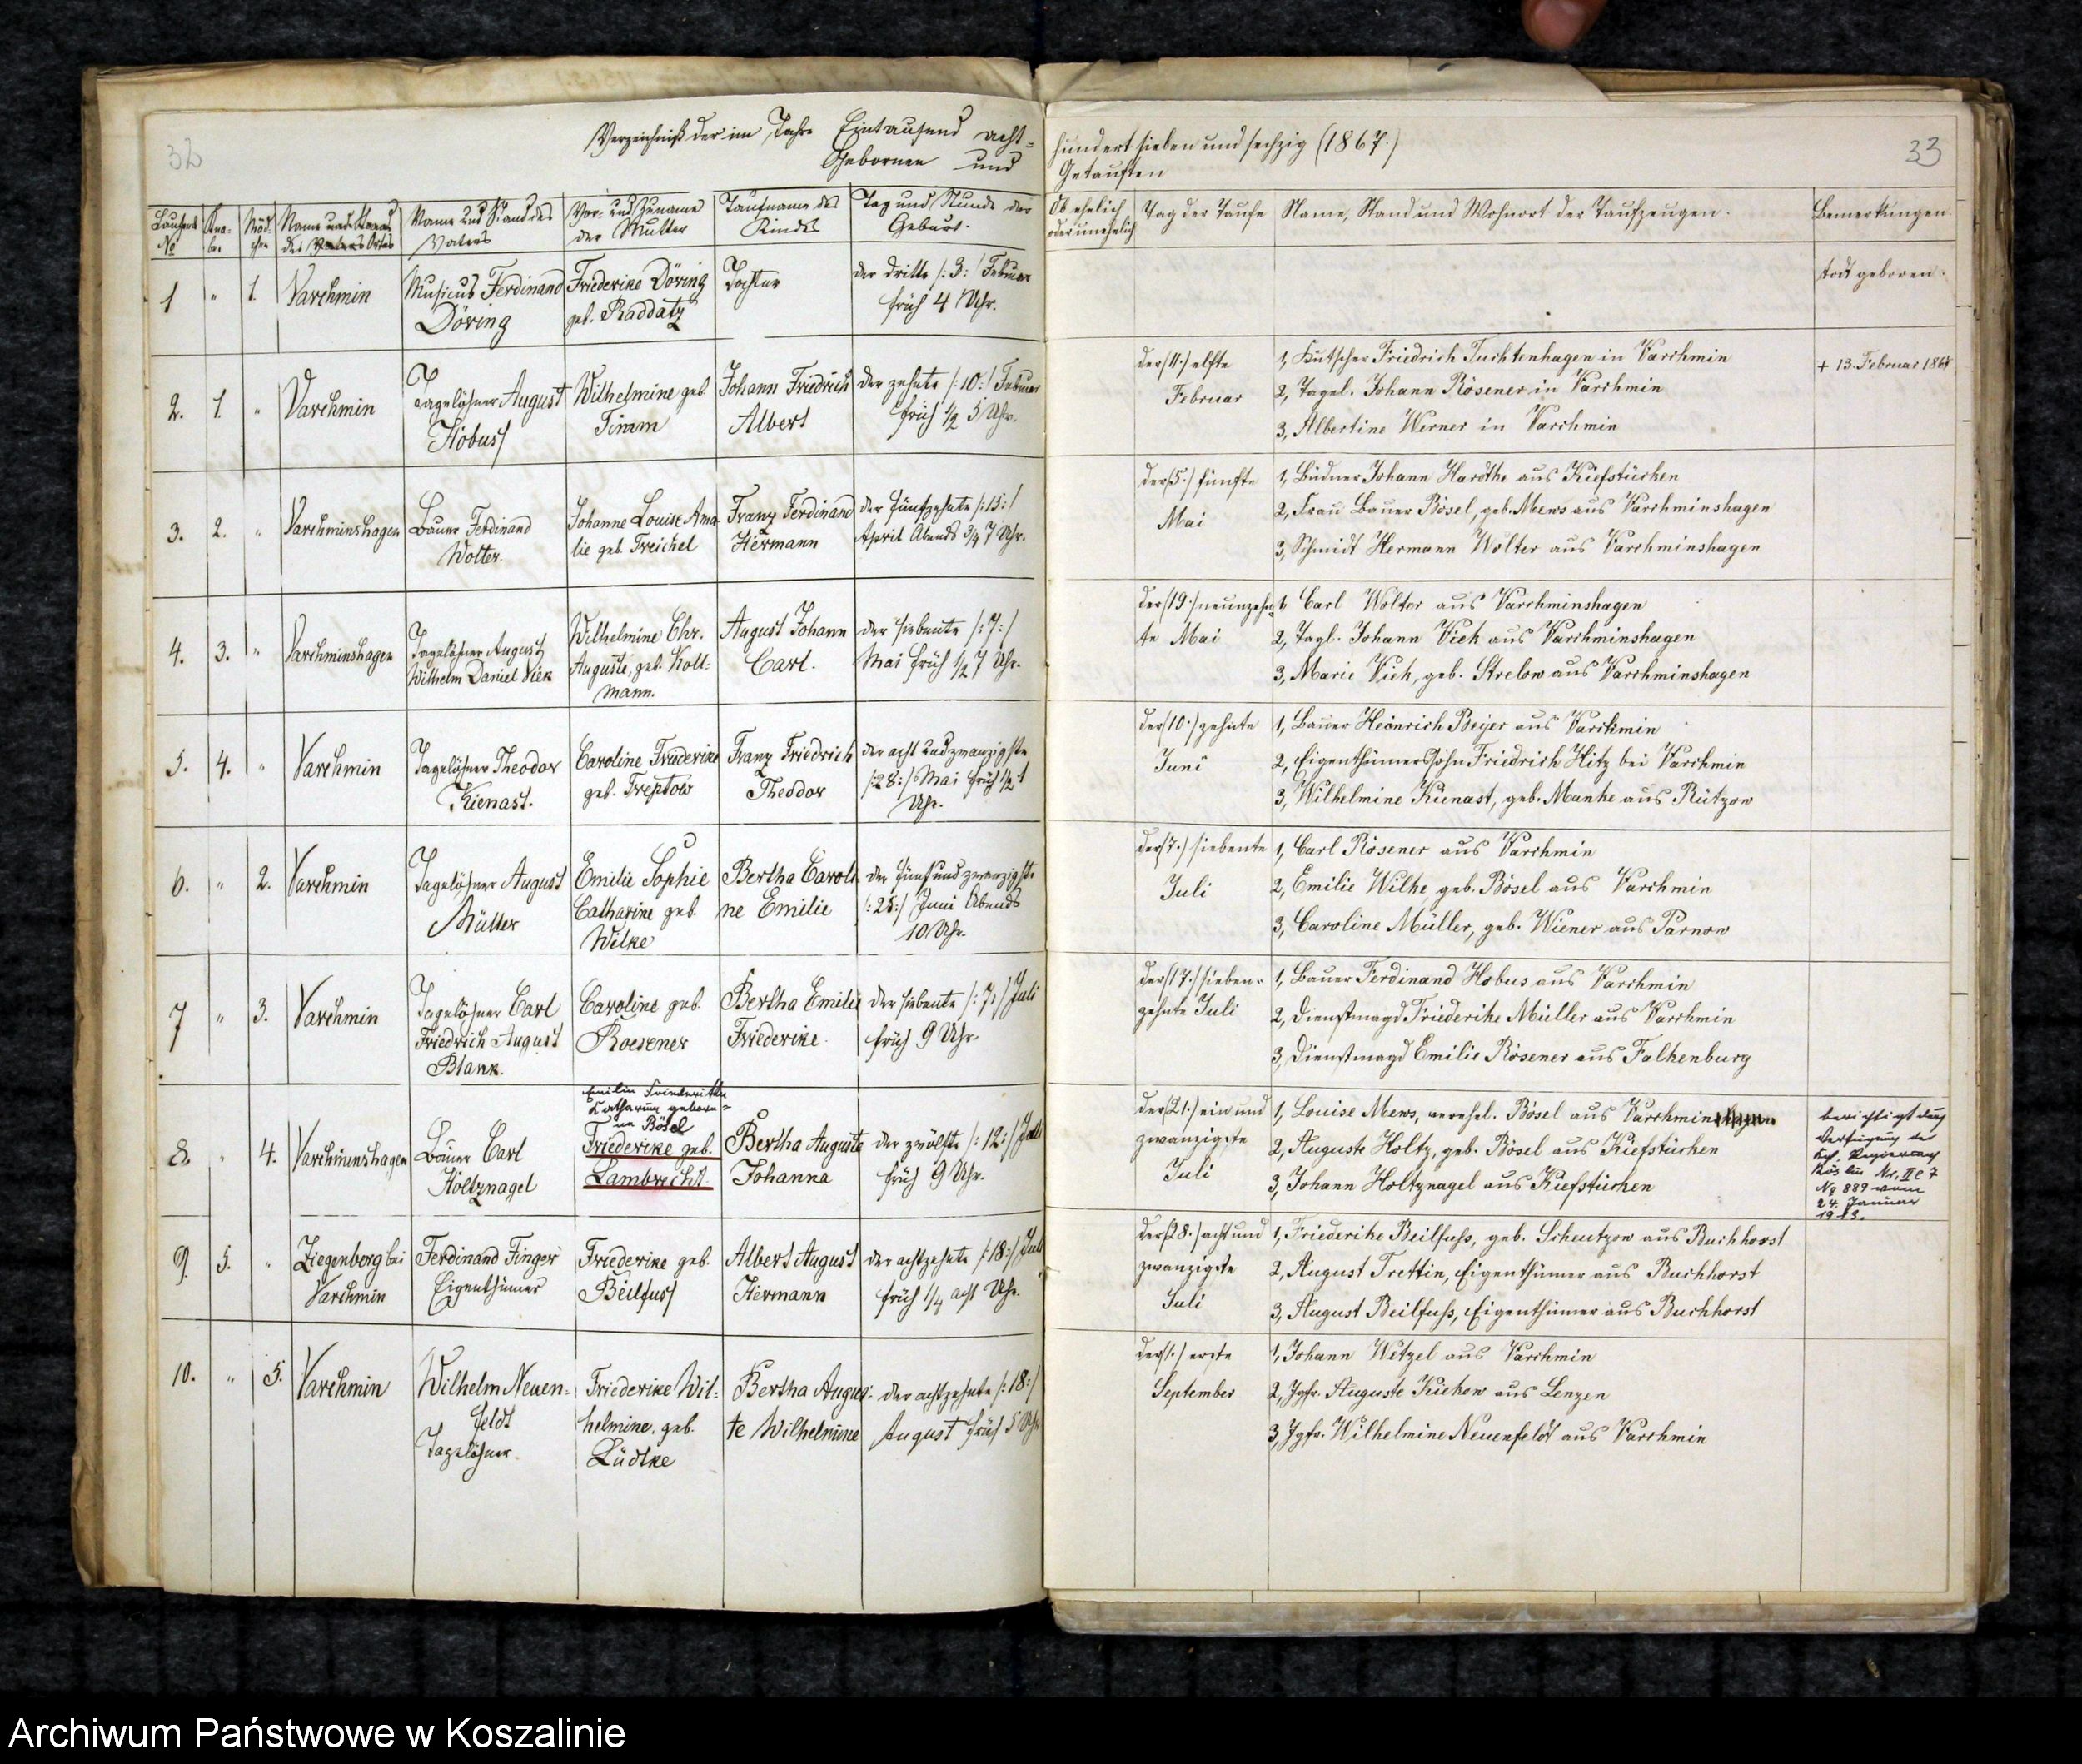 32
Verzeichniß der im Jahre Eintausend acht=
Gebornen und
hundert sieben und sechzig (1867.)
Getauften
33
Laufende No
Kna-ben
Mäd-chen
Name und
des Ortes
Name und Stand des
Vaters
Vor- und Zuname
der Mutter
Taufname des
Kindes
Tag und Stunde der
Geburt.
Ob ehelich
oder unehelich
Tag der Taufe
Name, Stand und Wohnort der Taufzeugen.
Bemerkungen.
1 " 1. Varchmin
Musicus Ferdinand
Döring
Friederike Döring
geb. Raddatz
Tochter
der dritte /:3:/ Februar
früh 4 Uhr.
todt geboren.
2. 1. " Varchmin
Tagelöhner August
Hobuss
Wilhelmine geb.
Timm
Johann Friedrich
Albert
der zehnte /:10:/ Februar
früh ½ 5 Uhr.
der (11.) elfte
Februar
1, Kutscher Friedrich Tuchtenhagen in Varchmin
2, Tagel. Johann Rösener in Varchmin
3, Albertine Werner in Varchmin
+ 13. Februar 1867
3. 2. " Varchminshagen
Bauer Ferdinand
Wolter.
Johanne Louise Ama-
lie geb. Treichel
Franz Ferdinand
Hermann
der fünfzehnte /:15:/
April Abends ¾ 7 Uhr.
der (5.) fünfte
Mai
1, Büdner Johann Hardtke aus Kiefstücken
2, Frau Bauer Bösel, geb. Mews aus Varchminshagen
3, Schmidt Hermann Wolter aus Varchminshagen
4. 3. " Varchminshagen
Tagelöhner August
Wilhelm Daniel Viek
Wilhelmine Chr.
Auguste, geb. Koll-
mann.
August Johann
Carl.
der siebente /:7:/
Mai früh ½ 7 Uhr.
der (19.) neunzehn-
te Mai
1, Carl Wolter aus Varchminshagen
2, Tagl. Johann Viek aus Varchminshagen
3, Marie Viek, geb. Strelow aus Varchminshagen
5. 4. " Varchmin
Tagelöhner Theodor
Kienast.
Caroline Friederike
geb. Treptow
Franz Friedrich
Theodor
der acht und zwanzigste
/:28:/ Mai früh ½ 1
Uhr.
der (10.) zehnte
Juni
1, Bauer Heinrich Beyer aus Varchmin
2, Eigenthümerssohn Friedrich Hitz bei Varchmin
3, Wilhelmine Kienast, geb. Manke aus Rützow
6. " 2. Varchmin
Tagelöhner August
Müller
Emilie Sophie
Catharine geb.
Wilke
Bertha Caroli-
ne Emilie
der fünfundzwanzigste
/:25:/ Juni Abends
10 Uhr.
der (7.) siebente
Juli
1, Carl Rösener aus Varchmin
2, Emilie Wilke, geb. Bösel aus Varchmin
3, Caroline Müller, geb. Wiener aus Parnow
7 " 3. Varchmin
Tagelöhner Carl
Friedrich August
Blank.
Caroline geb.
Roesener
Bertha Emilie
Friederike.
der siebente /:7:/ Juli
früh 9 Uhr.
der (17.) sieben-
zehnte Juli
1, Bauer Ferdinand Hobus aus Varchmin
2, Dienstmagd Friederike Müller aus Varchmin
3, Dienstmagd Emilie Rösener aus Falkenburg
8. " 4. Varchminshagen
Bauer Carl
Holtznagel
Emilie Friederike
Katharine gebore-
ne Bösel
Friederike geb.
Lambrecht.
Bertha Auguste
Johanna
der zwölfte /:12:/ Juli
früh 9 Uhr.
der (21.) ein und
zwanzigste
Juli
1, Louise Mews, verehel. Bösel aus Varchmin
2, Auguste Holtz, geb. Bösel aus Kiefstücken
3, Johann Holtznagel aus Kiefstücken
berichtigt durch
Verfügung der
Kgl. Regierung
Köslin Nr. II C 7
No 889 vom
24. Januar
1913.
9. 5. " Ziegenberg bei
Varchmin
Ferdinand Finger
Eigenthümer
Friederike geb.
Beilfuss
Albert August
Hermann
der achtzehnte /:18:/ Juli
früh ¼ acht Uhr.
der (28.) acht und
zwanzigste
Juli
1, Friederike Beilfuss, geb. Scheutzow aus Buchhorst
2, August Trettin, Eigenthümer aus Buchhorst
3, August Beilfuss, Eigenthümer aus Buchhorst
10. " 5. Varchmin
Wilhelm Neuen-
feldt
Tagelöhner.
Friederike Wil-
helmine, geb.
Lüdtke
Bertha Augus-
te Wilhelmine
der achtzehnte /:18:/
August früh 5 Uhr
der (1.) erste
September
1, Johann Wetzel aus Varchmin
2, Jgfr. Auguste Kickow aus Lenzen
3, Jgfr. Wilhelmine Neuenfeldt aus Varchmin
Archiwum Państwowe w Koszalinie